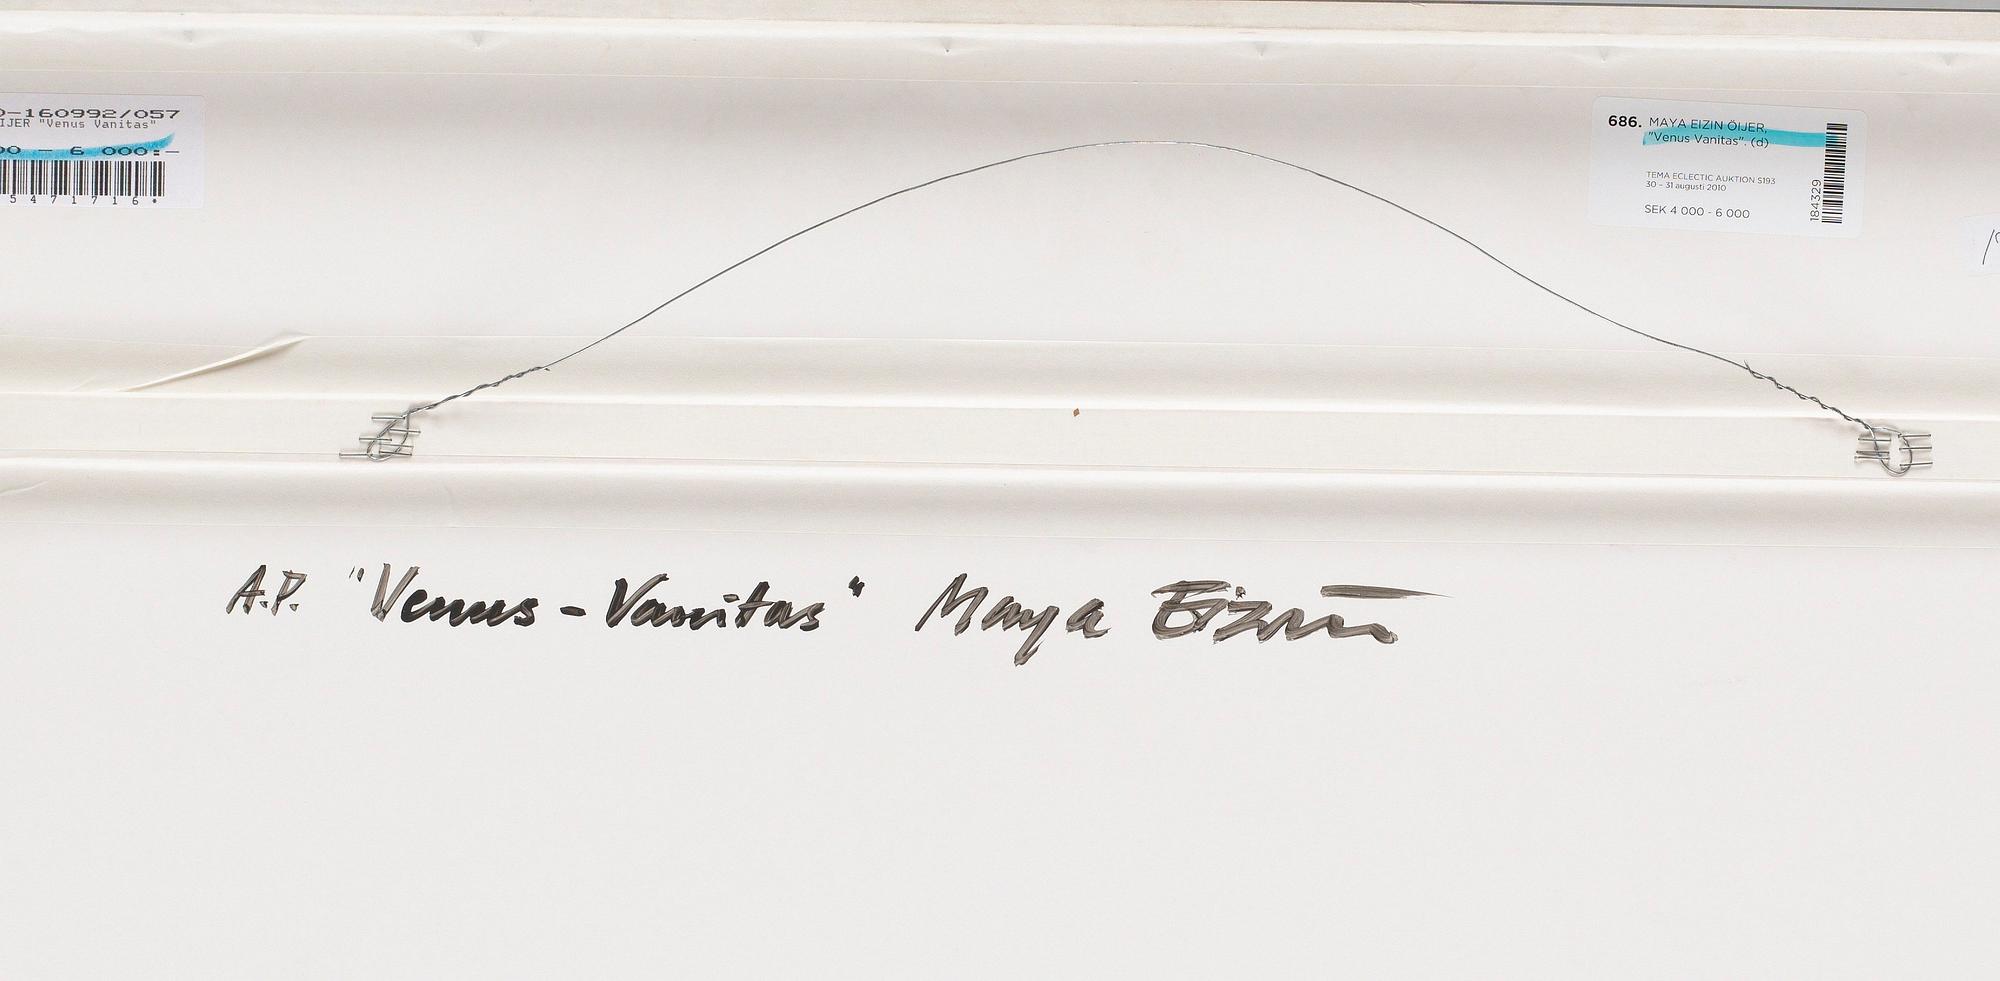 -160992/057
IJER "Venus Vanitas"
00 - 6 000:-
5 4 7 1 7 1 6 *
686. MAYA EIZIN ÖIJER,
"Venus Vanitas". (d)
TEMA ECLECTIC AUKTION S193
30 – 31 augusti 2010
SEK 4 000 - 6 000
184329
A.P. "Venus - Vanitas" Maya Eizin